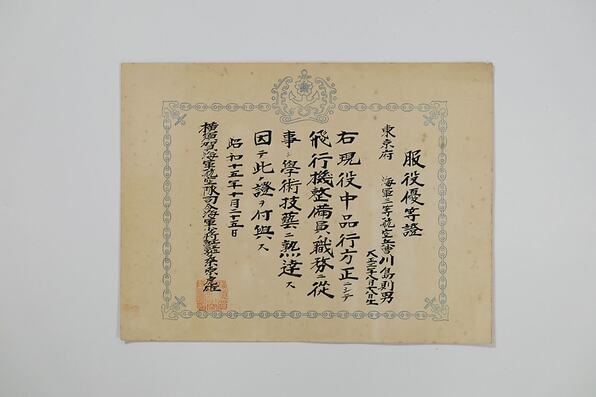 服役優等證
東京府 海軍三等航空兵曹川島則男
大正二年八月十八日生
右現役中品行方正ニシテ
飛行機整備員ノ職務ニ從
事シ學術技藝ニ熟達ス
因テ此證ヲ付與ス
昭和十五年十月二十五日
横須賀海軍航空隊司令海軍少將